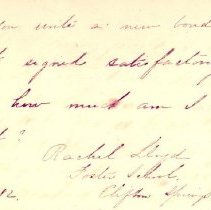 you write a new bond
signed satisfactory
how much am I
t?
Rachel Lloyd
Foster School,
82. Clifton Springs